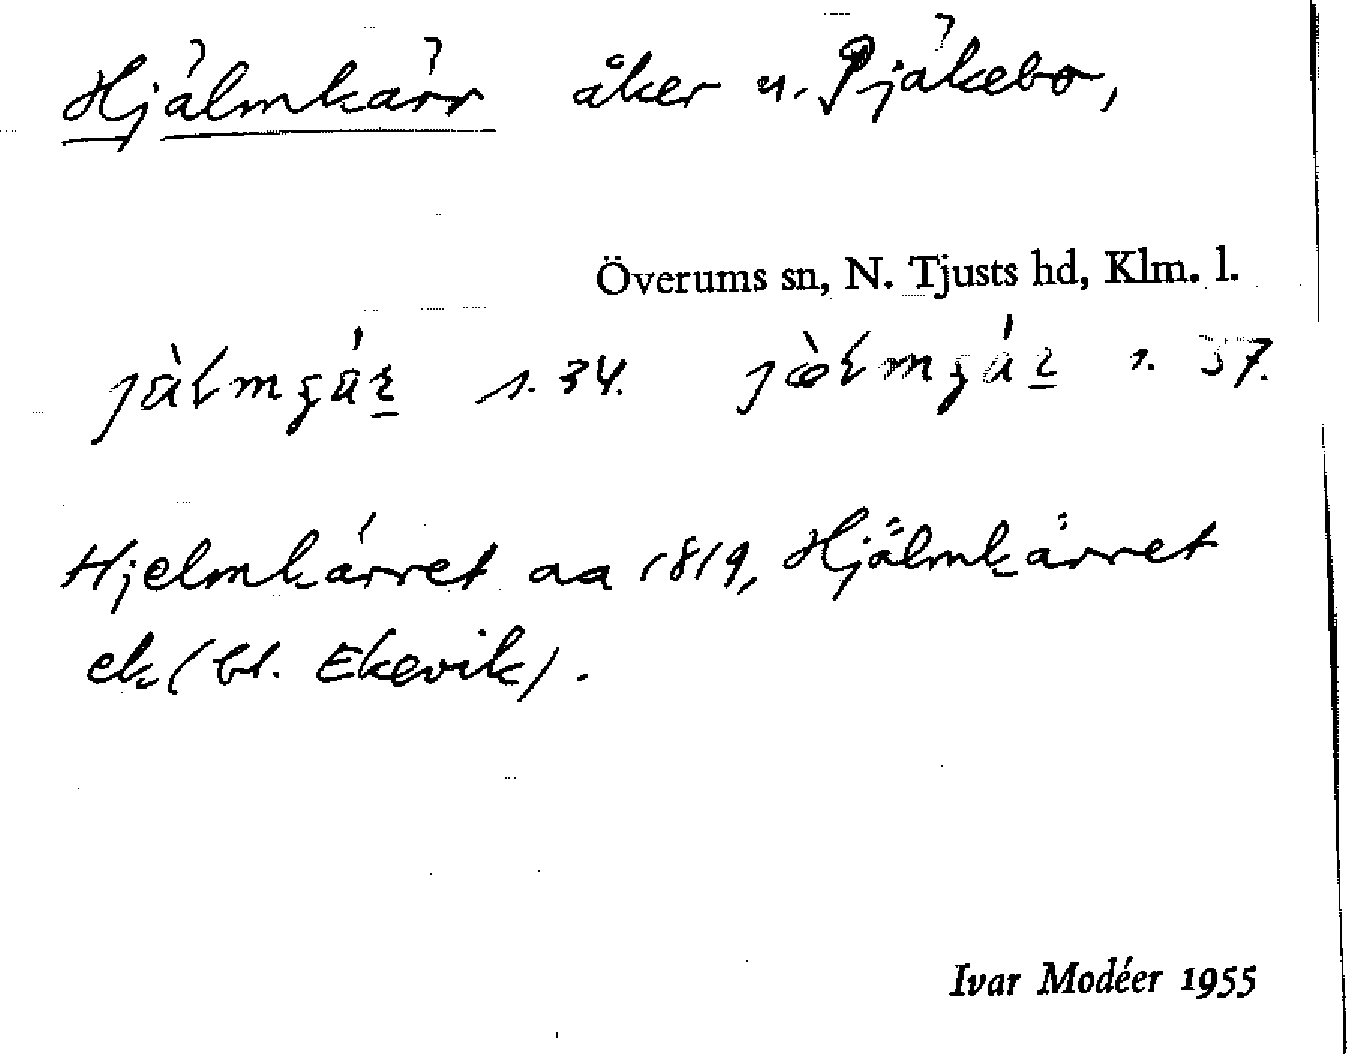 Hjälmkärr åker u. Pjäkebo,
Överums sn, N. Tjusts hd, Klm. l.
s. 34. s. 37.
Hjelmkärret aa 1819, Hjälmkärret
ek (bl. Ekevik).
Ivar Modéer 1955